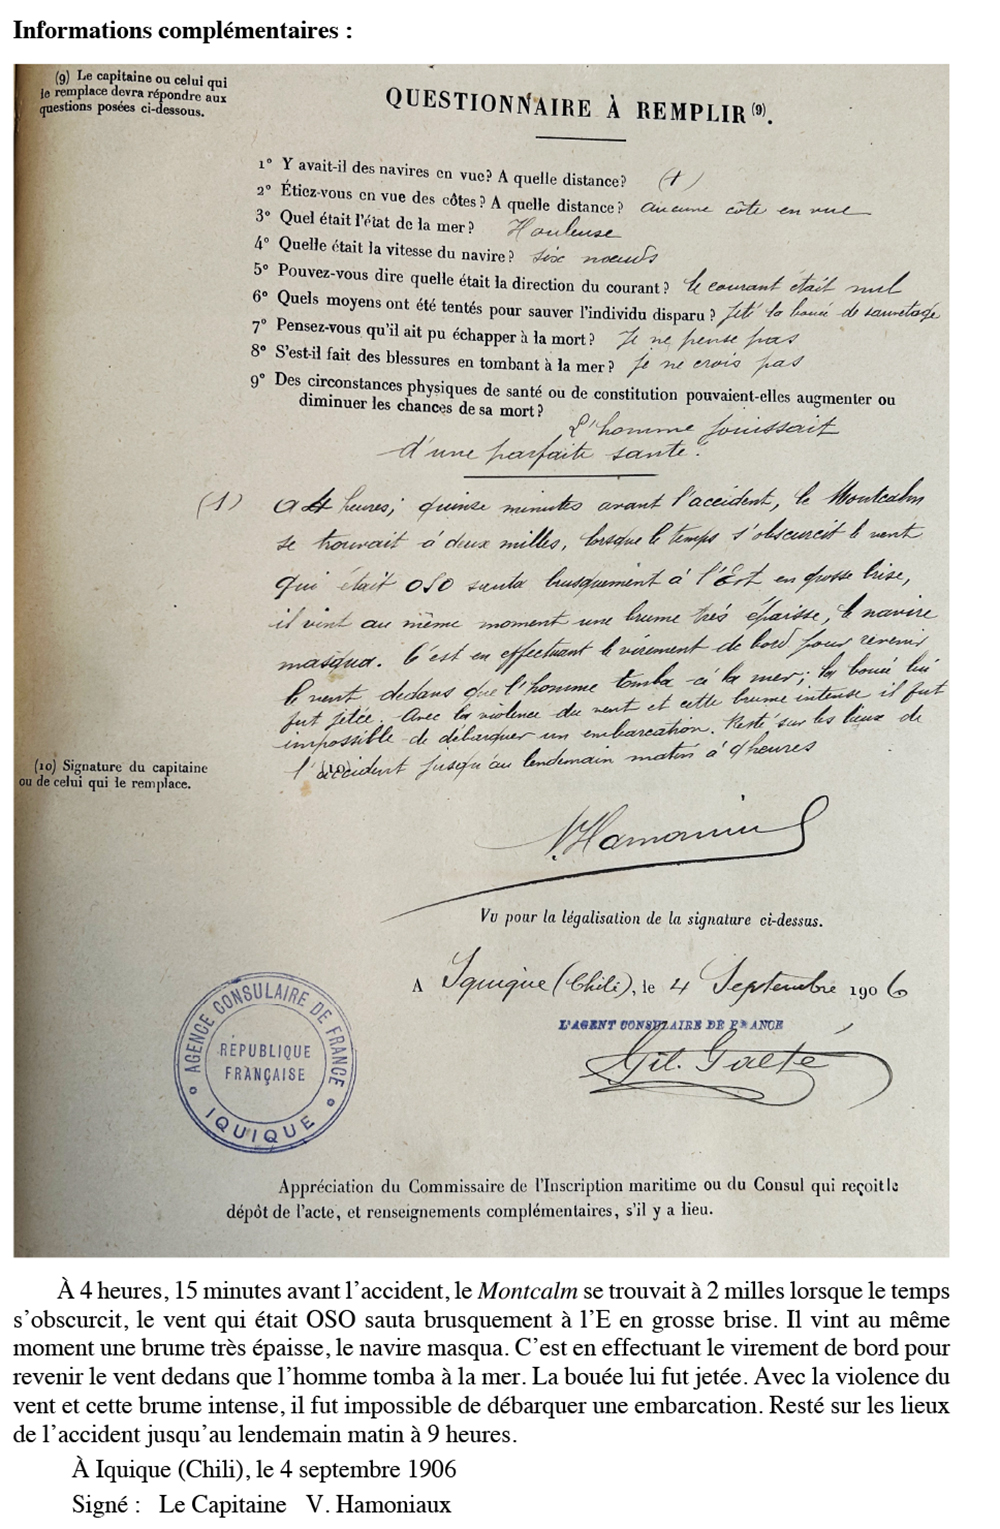 Informations complémentaires :
(9) Le capitaine ou celui qui
le remplace devra répondre aux
questions posées ci-dessous.
QUESTIONNAIRE À REMPLIR (9).
1° Y avait-il des navires en vue? A quelle distance? (1)
2° Étiez-vous en vue des côtes? A quelle distance? aucune côte en vue
3° Quel était l'état de la mer? Houleuse
4° Quelle était la vitesse du navire? six nœuds
5° Pouvez-vous dire quelle était la direction du courant? le courant était nul
6° Quels moyens ont été tentés pour sauver l'individu disparu? Jeté la bouée de sauvetage
7° Pensez-vous qu'il ait pu échapper à la mort? Je ne pense pas
8° S'est-il fait des blessures en tombant à la mer? je ne crois pas
9° Des circonstances physiques de santé ou de constitution pouvaient-elles augmenter ou
diminuer les chances de sa mort?
L'homme jouissait
d'une parfaite santé.
(1) a 4 heures; quinze minutes avant l'accident, le Montcalm
se trouvait à deux milles, lorsque le temps s'obscurcit le vent
qui était OSO sauta brusquement à l'Est en grosse brise,
il vint au même moment une brume très épaisse, le navire
masqua. C'est en effectuant le virement de bord pour revenir
le vent dedans que l'homme tomba à la mer; la bouée lui
fut jetée. Avec la violence du vent et cette brume intense il fut
impossible de débarquer un embarcation. Resté sur les lieux de
l'accident jusqu'au lendemain matin à 9 heures
(10)
(10) Signature du capitaine
ou de celui qui le remplace.
V. Hamoniaux
Vu pour la légalisation de la signature ci-dessus.
A Iquique (Chili), le 4 Septembre 1906
L'AGENT CONSULAIRE DE FRANCE
AGENCE CONSULAIRE DE FRANCE
RÉPUBLIQUE
FRANÇAISE
IQUIQUE
Appréciation du Commissaire de l'Inscription maritime ou du Consul qui reçoit le
dépôt de l'acte, et renseignements complémentaires, s'il y a lieu.
À 4 heures, 15 minutes avant l'accident, le Montcalm se trouvait à 2 milles lorsque le temps
s'obscurcit, le vent qui était OSO sauta brusquement à l'E en grosse brise. Il vint au même
moment une brume très épaisse, le navire masqua. C'est en effectuant le virement de bord pour
revenir le vent dedans que l'homme tomba à la mer. La bouée lui fut jetée. Avec la violence du
vent et cette brume intense, il fut impossible de débarquer une embarcation. Resté sur les lieux
de l'accident jusqu'au lendemain matin à 9 heures.
À Iquique (Chili), le 4 septembre 1906
Signé : Le Capitaine V. Hamoniaux